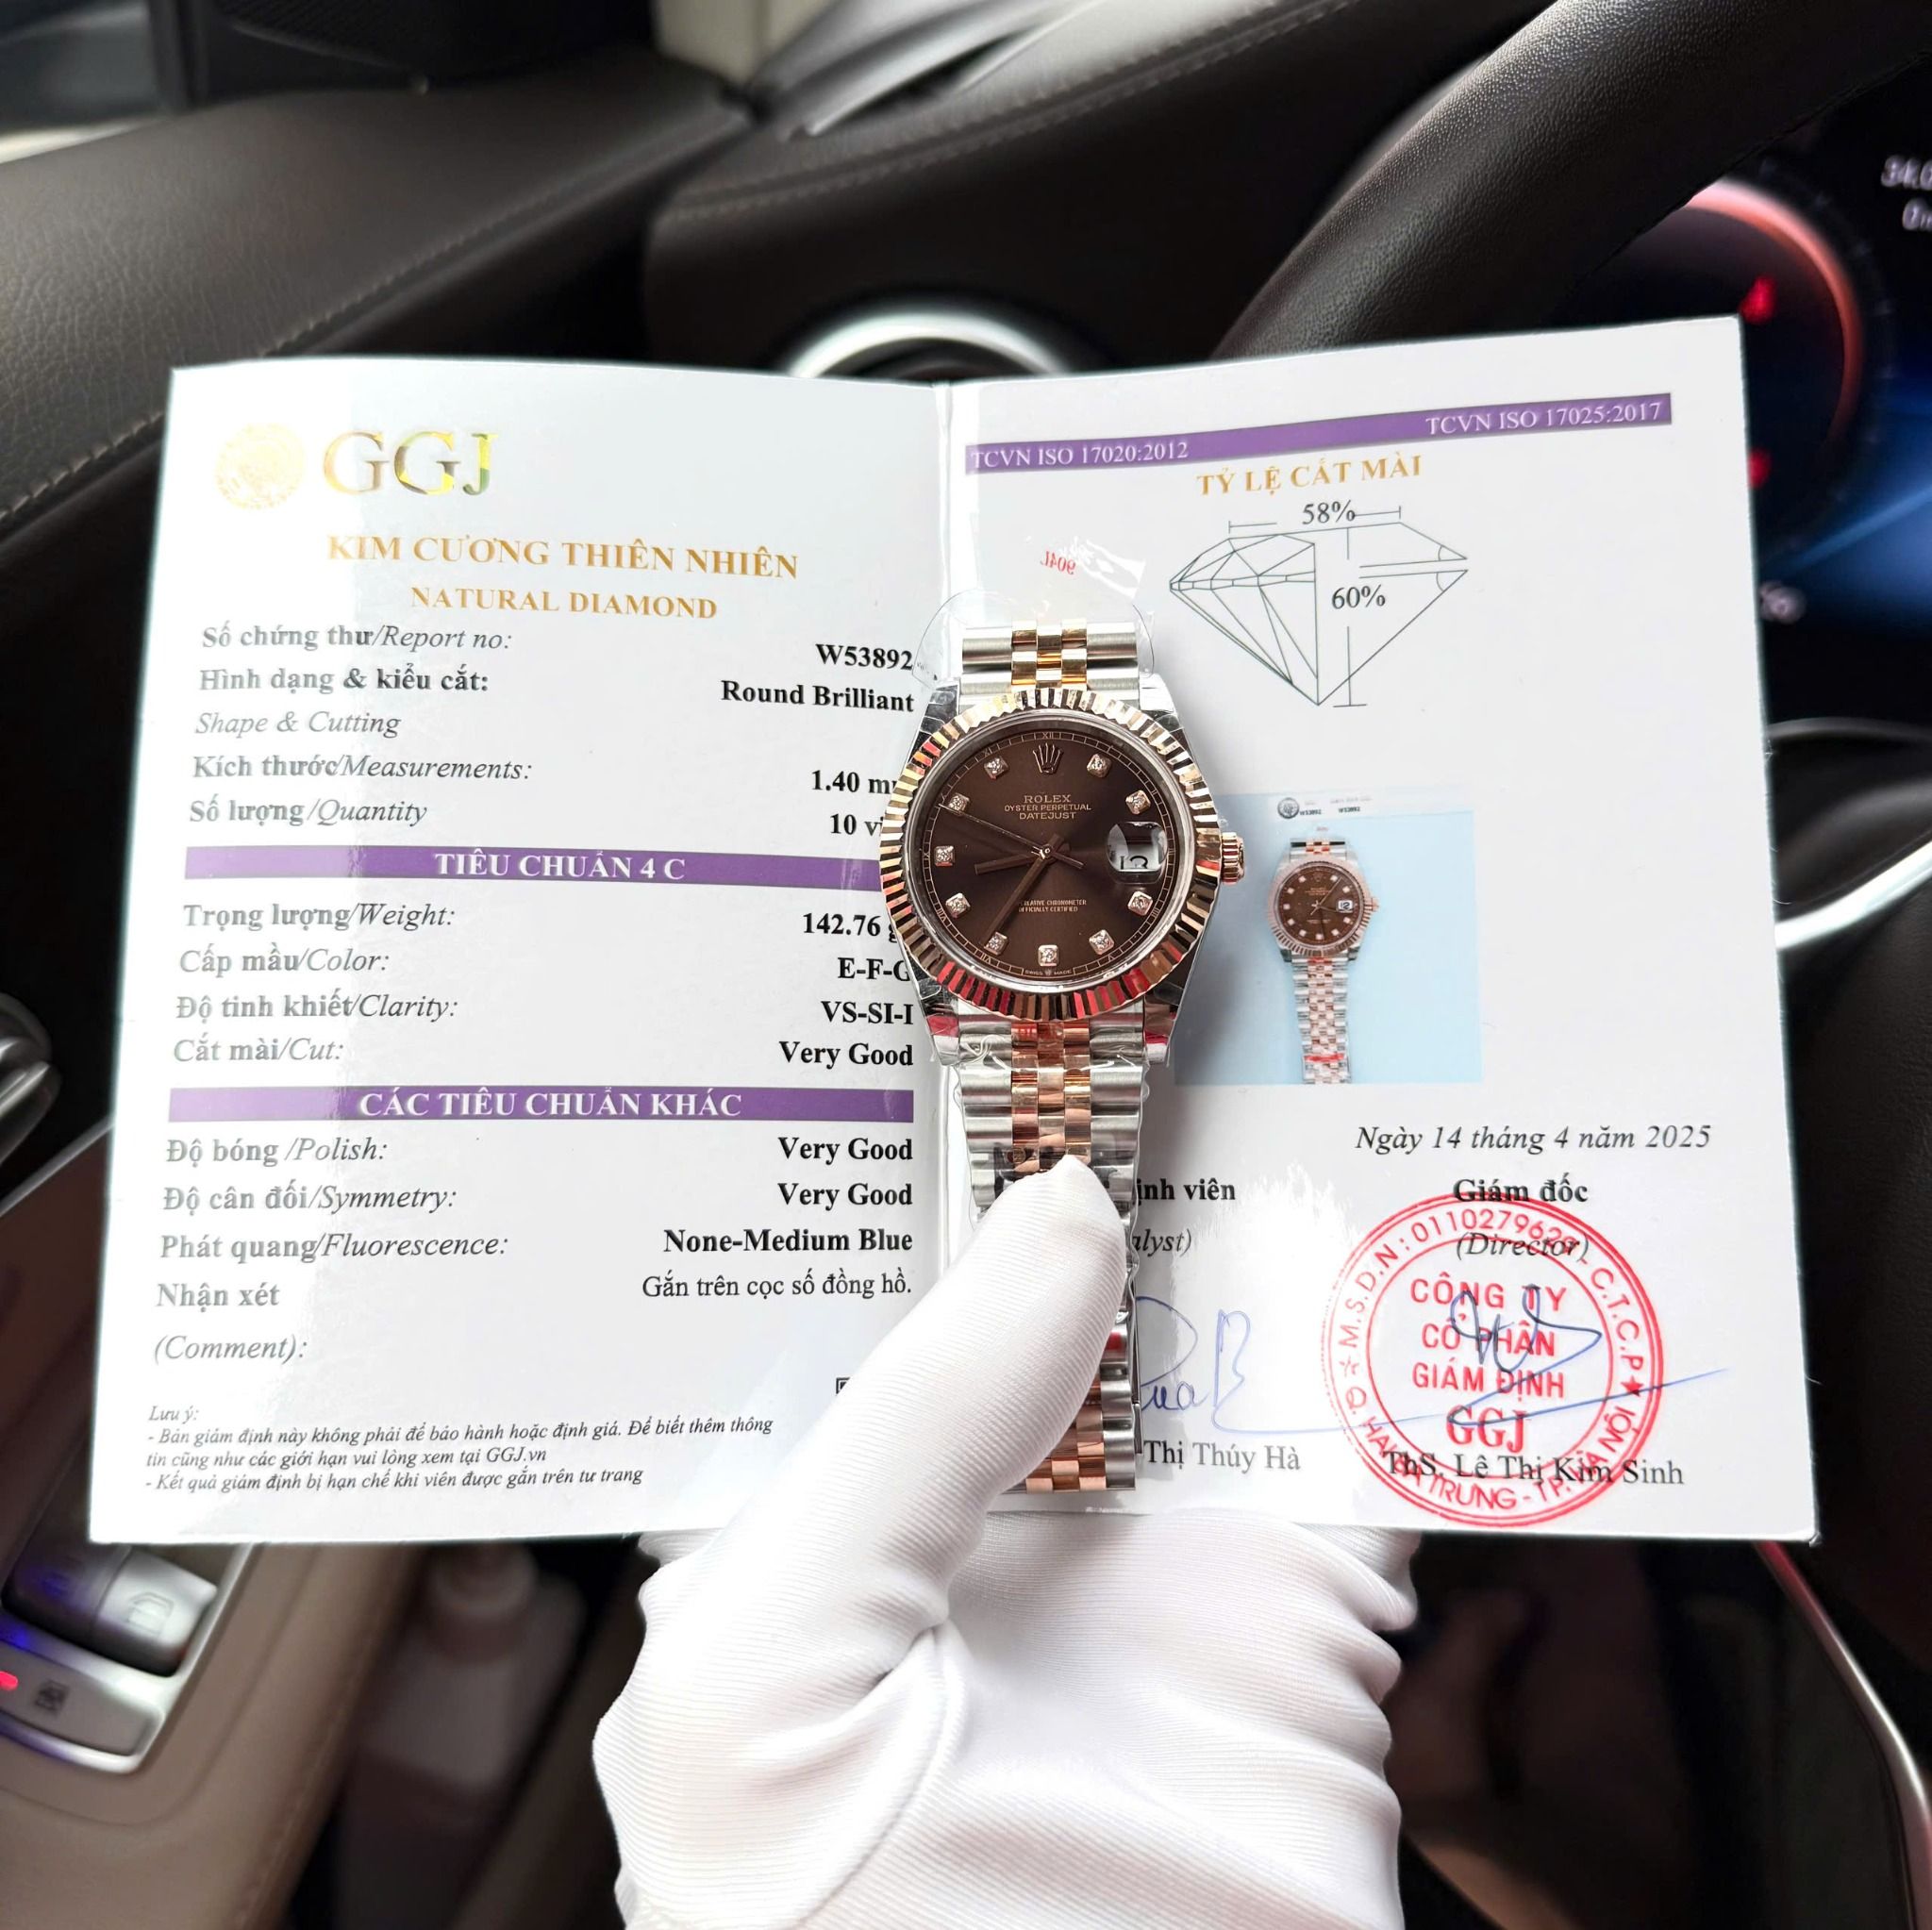 GGJ
KIM CƯƠNG THIÊN NHIÊN
NATURAL DIAMOND
Số chứng thư/Report no: W53892
Hình dạng & kiểu cắt: Round Brilliant
Shape & Cutting
Kích thước/Measurements: 1.40 m
Số lượng/Quantity 10 vi
TIÊU CHUẨN 4 C
Trọng lượng/Weight: 142.76 g
Cấp mầu/Color: E-F-G
Độ tinh khiết/Clarity: VS-SI-I
Cắt mài/Cut: Very Good
CÁC TIÊU CHUẨN KHÁC
Độ bóng /Polish: Very Good
Độ cân đối/Symmetry: Very Good
Phát quang/Fluorescence: None-Medium Blue
Nhận xét Gắn trên cọc số đồng hồ.
(Comment):
Lưu ý:
- Bản giám định này không phải để bảo hành hoặc định giá. Để biết thêm thông
tin cũng như các giới hạn vui lòng xem tại GGJ.vn
- Kết quả giám định bị hạn chế khi viên được gắn trên tư trang
TCVN ISO 17020:2012 TCVN ISO 17025:2017
TỶ LỆ CẮT MÀI
58%
60%
904L
ROLEX
OYSTER PERPETUAL
DATEJUST
13
CHRONOMETER
OFFICIALLY CERTIFIED
SWISS MADE
W53892 W53892
Ngày 14 tháng 4 năm 2025
inh viên Giám đốc
alyst) (Director)
M.S.D.N: 0110279629 - C.T.C.P
CÔNG TY
CỔ PHẦN
GIÁM ĐỊNH
GGJ
Thị Thúy Hà ThS. Lê Thị Kim Sinh
Q. HAI BÀ TRƯNG - TP. HÀ NỘI